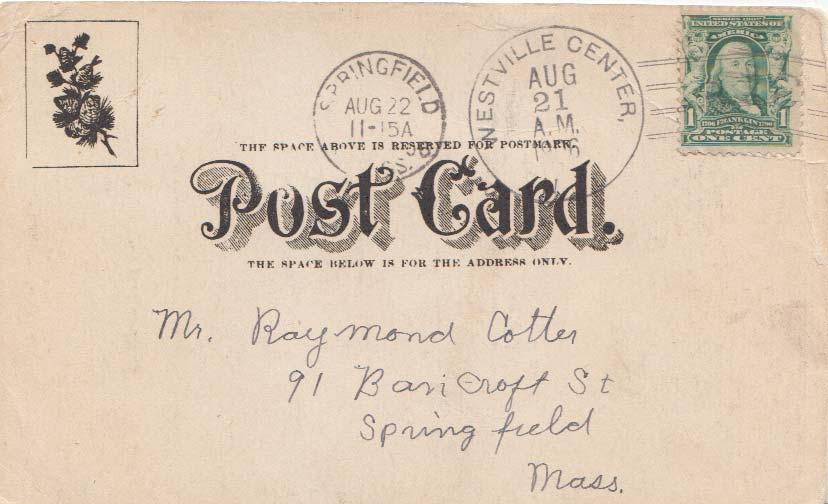 SERIES 1902
UNITED STATES OF
AMERICA
1 1706 FRANKLIN 1790 1
POSTAGE
ONE CENT
SPRINGFIELD
AUG 22
11-15A
WESTVILLE CENTER,
AUG
21
A.M.
THE SPACE ABOVE IS RESERVED FOR POSTMARK.
Post Card.
THE SPACE BELOW IS FOR THE ADDRESS ONLY.
Mr. Raymond Cotter
91 Bancroft St
Springfield
Mass.